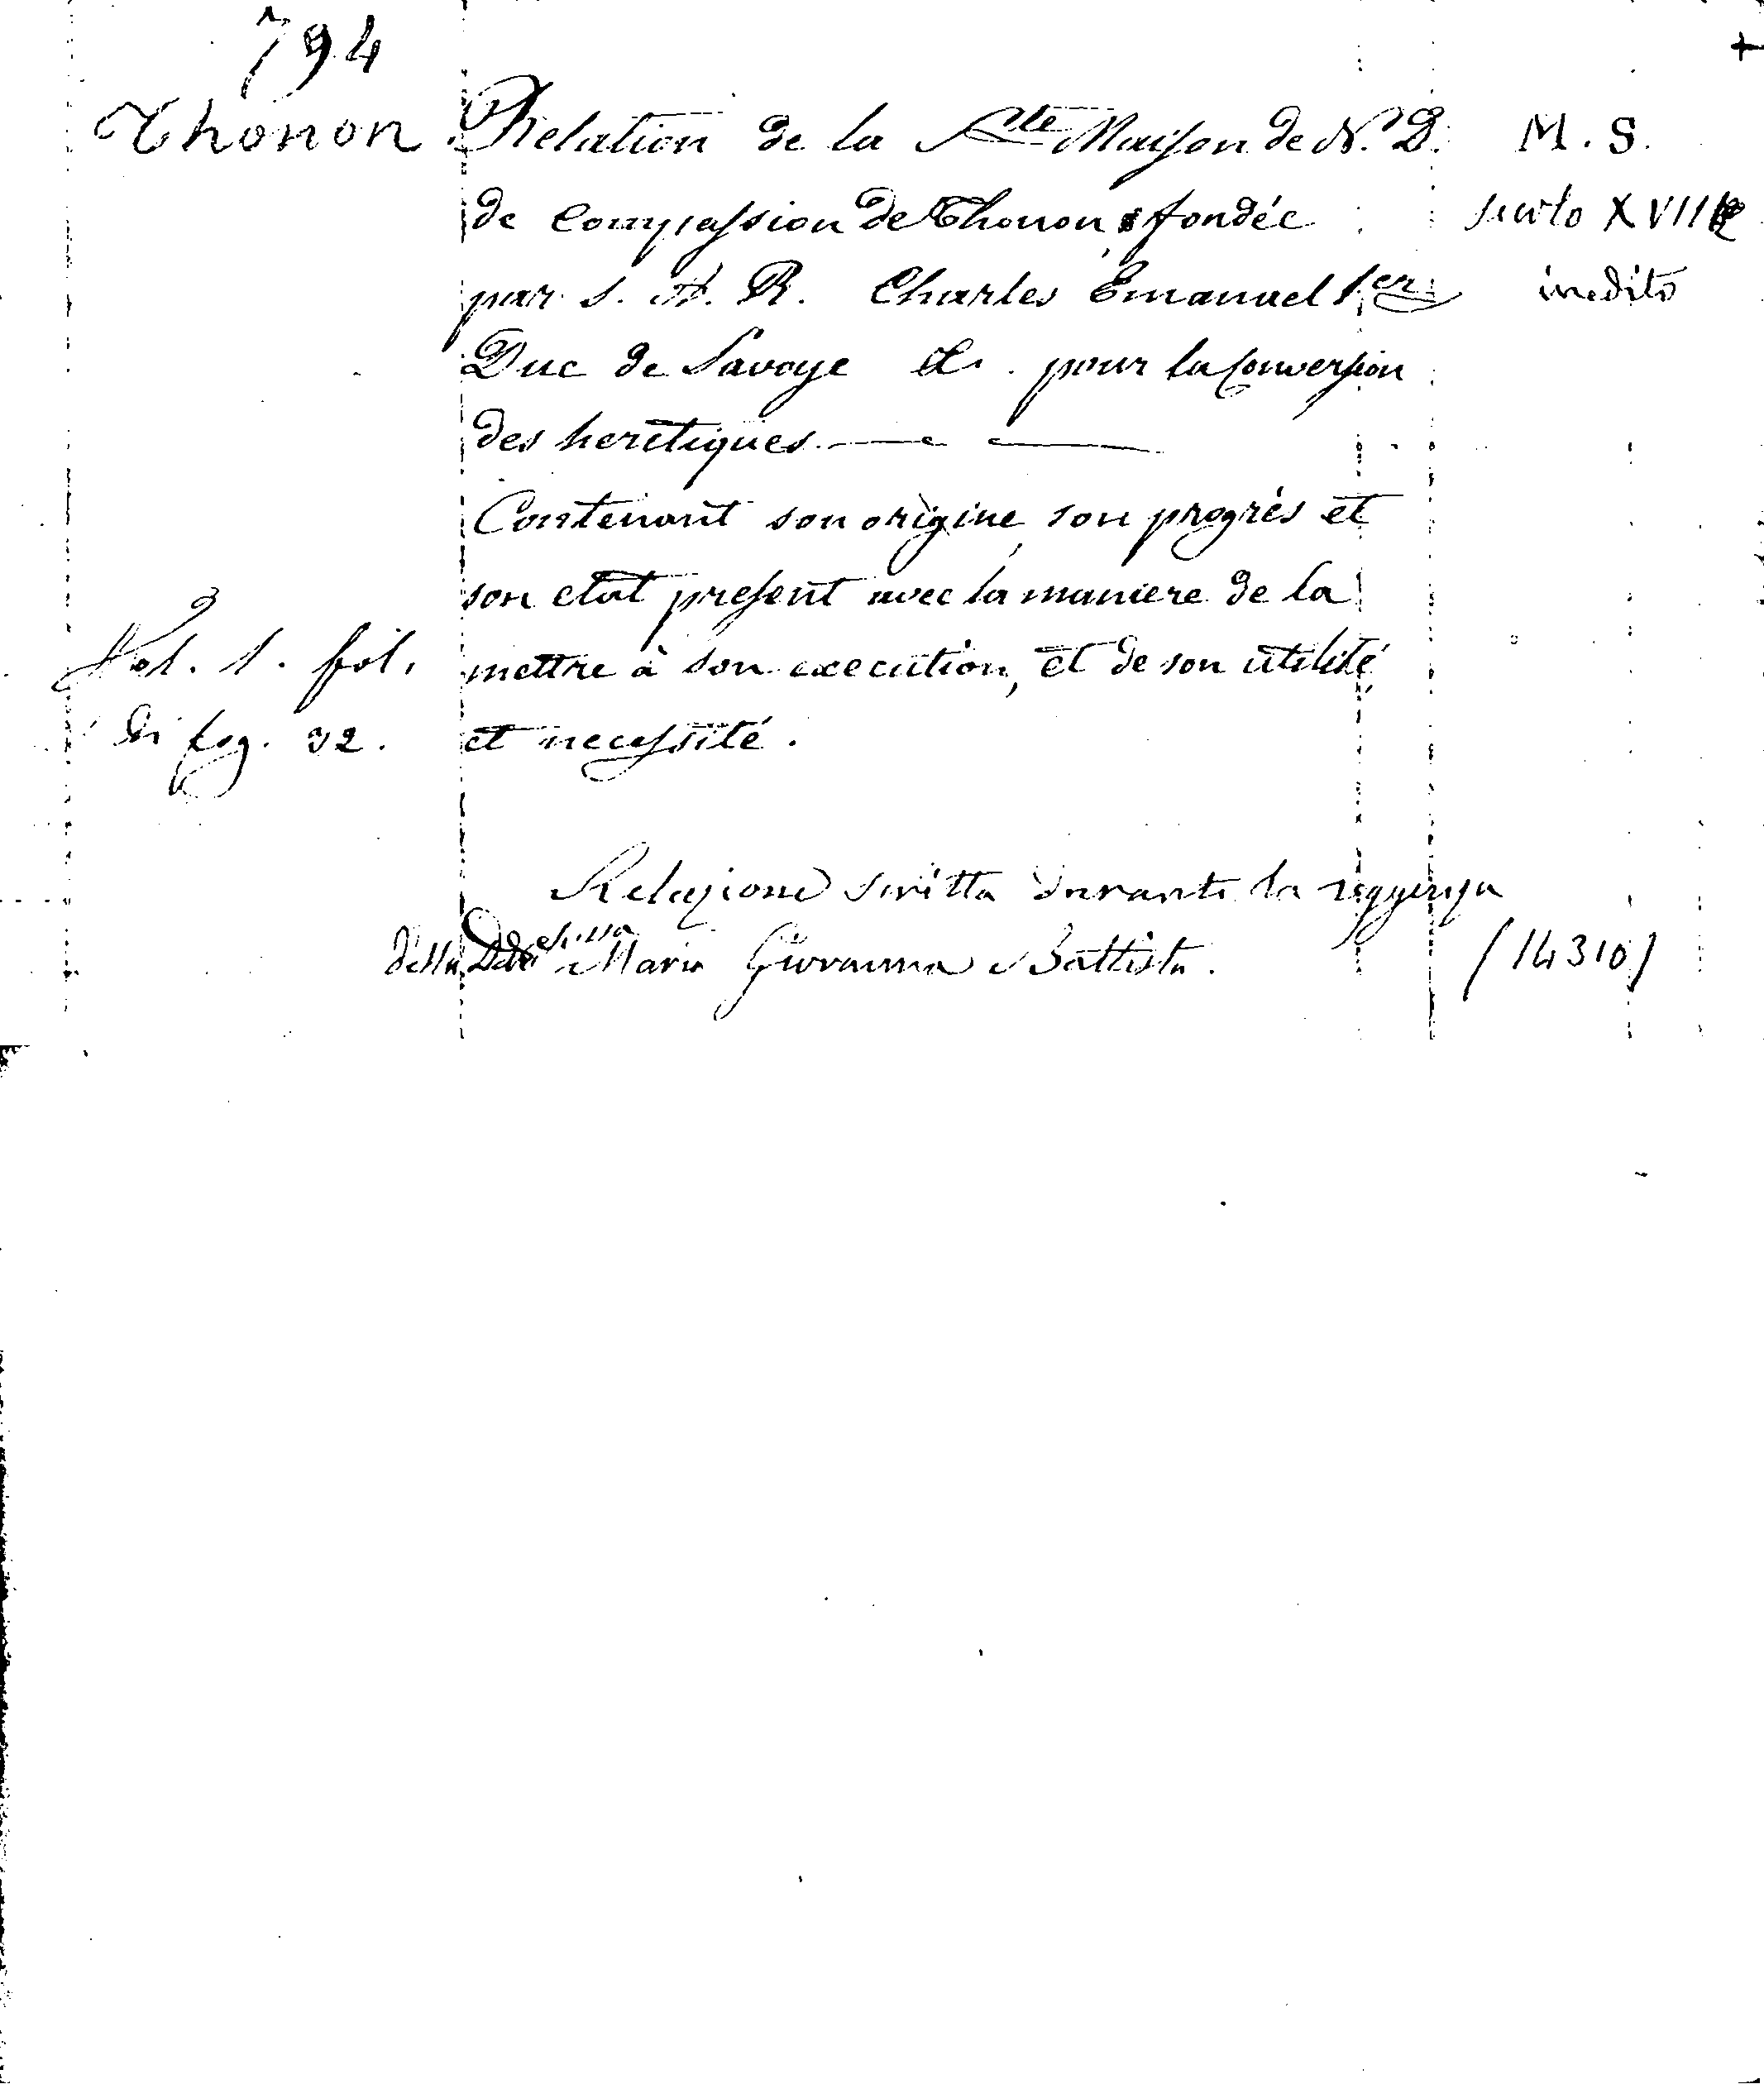 794
+
Thonon
Relation de la Ste Maison de N. D.
de Compassion de Thonon fondée
par S. A. R. Charles Emanuel 1er
Duc de Savoye &. pour la Conversion
des heretiques.
Contenant son origine, son progrès et
son etat present avec la maniere de la
mettre à son execution, et de son utilité
et necessité.
M. S.
secolo XVII
inedito
Vol. 1. fol.
di fog. 32.
Relazione scritta durante la reggenza
della Duchessa Maria Giovanna Battista.
(14310)